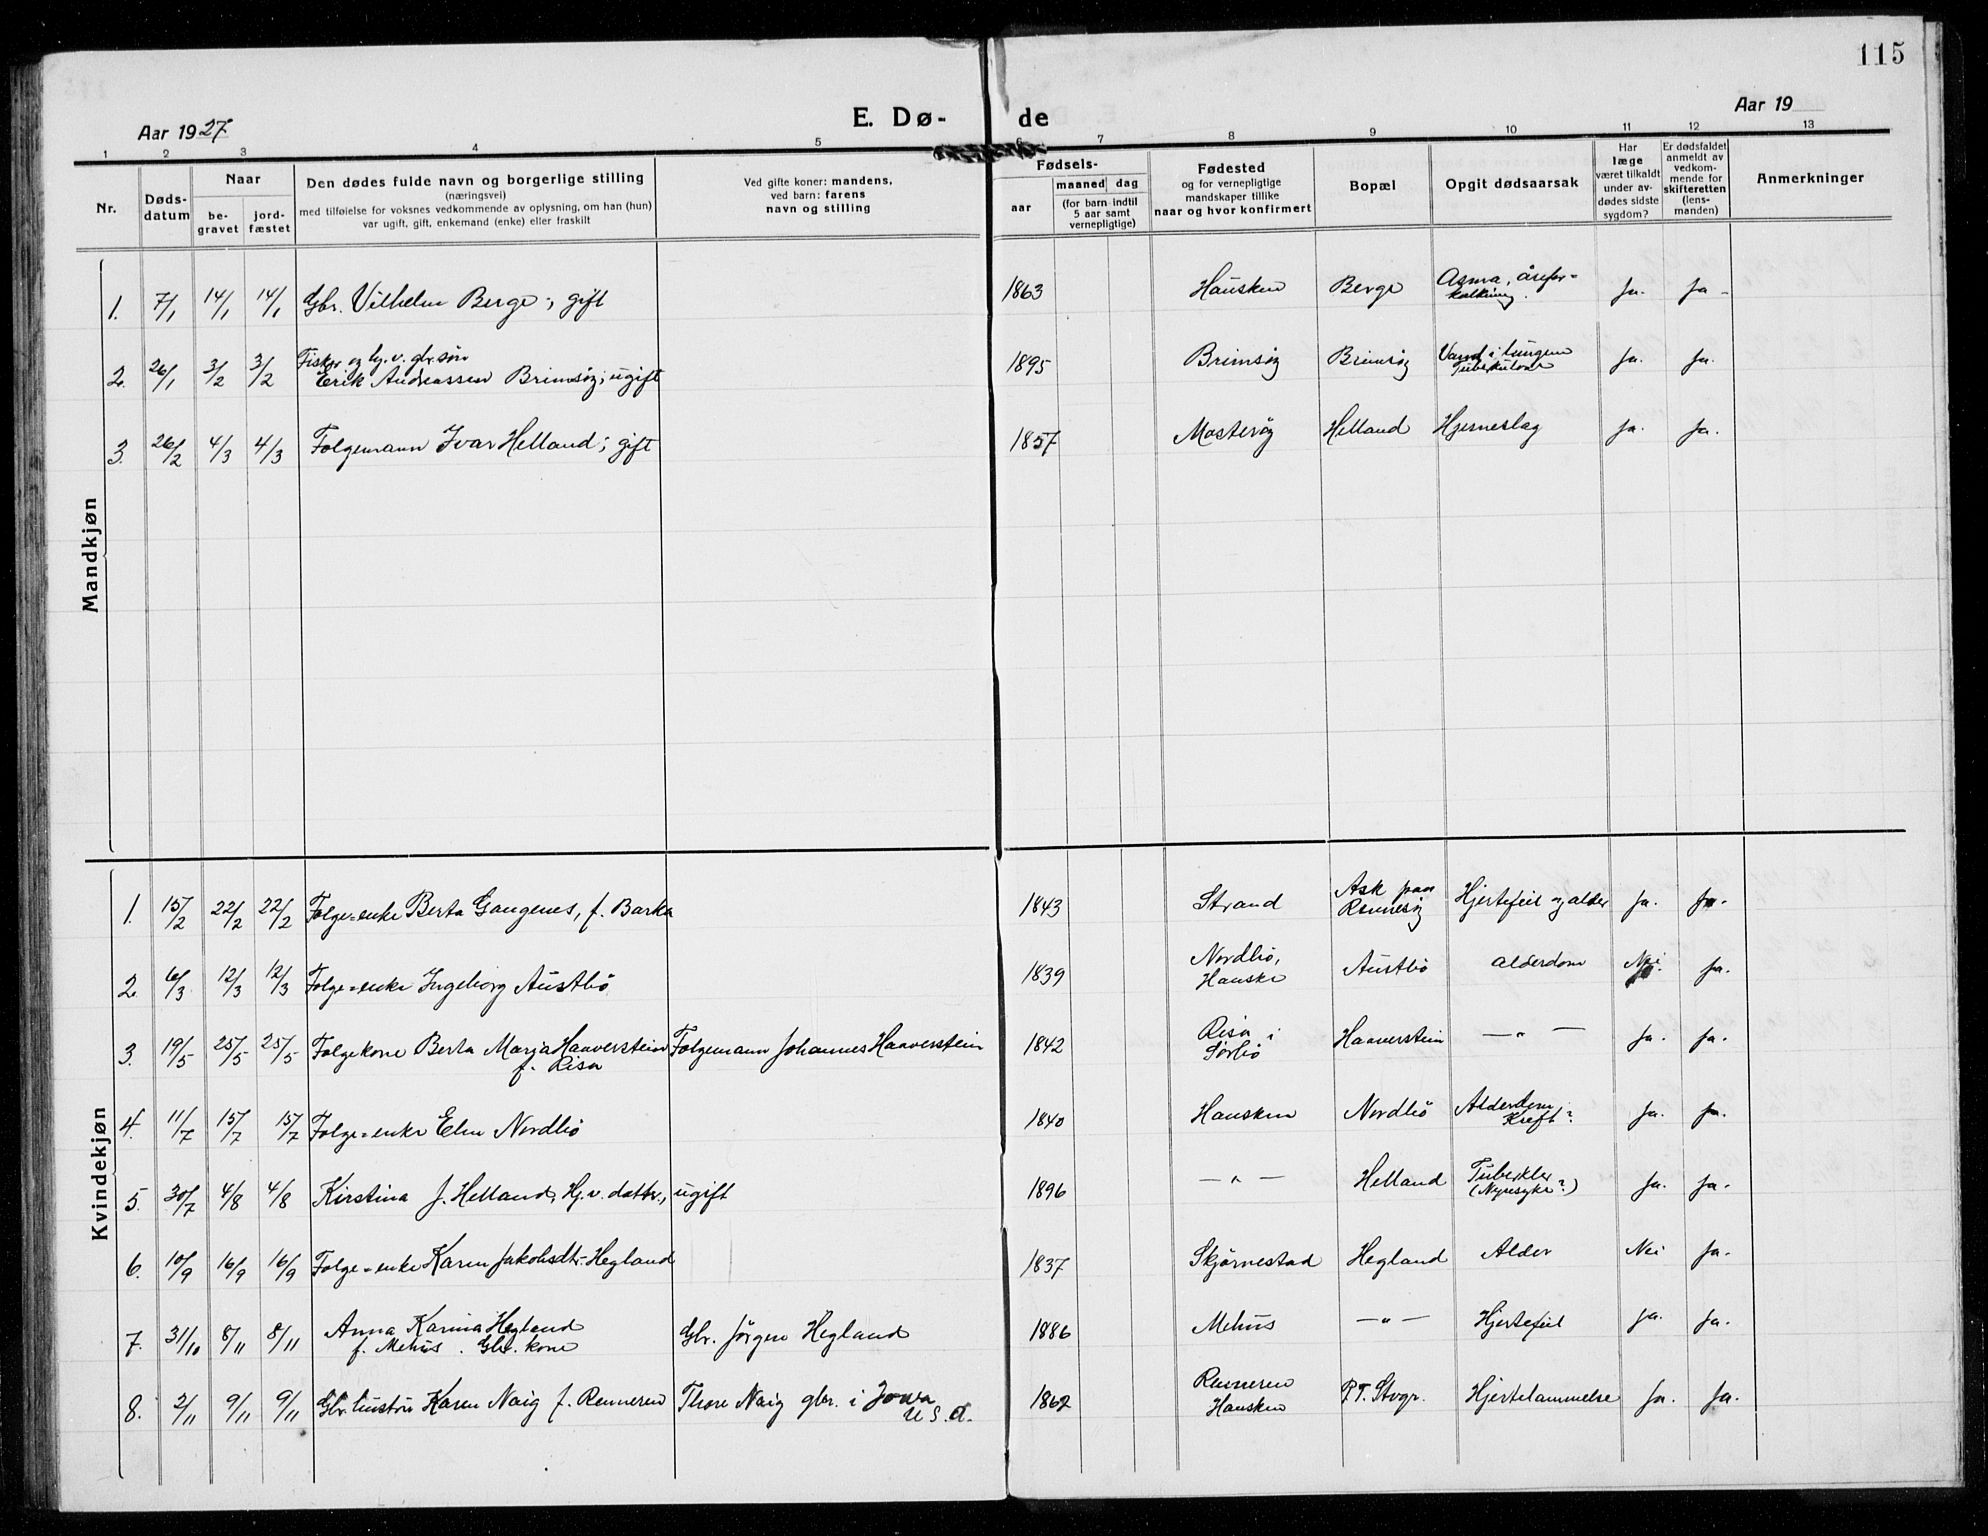 115
Aar 1927
E. Dø-
de
Aar 19
1 2 3 4 5 6 7 8 9 10 11 12 13
Nr.
Døds-
datum
Naar
be-
gravet
jord-
fæstet
Den dødes fulde navn og borgerlige stilling
(næringsvei)
med tilføielse for voksnes vedkommende av oplysning, om han (hun)
var ugift, gift, enkemand (enke) eller fraskilt
Ved gifte koner: mandens,
ved barn: farens
navn og stilling
Fødsels-
aar
maaned dag
(for barn indtil
5 aar samt
vernepligtige)
Fødested
og for vernepligtige
mandskaper tillike
naar og hvor konfirmert
Bopæl
Opgit dødsaarsak
Har
læge
været tilkaldt
under av-
dødes sidste
sygdom?
Er dødsfaldet
anmeldt av
vedkom-
mende for
skifteretten
(lens-
manden)
Anmerkninger
Mandkjøn
1. 7/1 14/1 14/1 Gbr. Vilhelm Berge; gift 1863 Hausken Berge Asma, årefor-
kalkning. ja. ja-
Fisker og hj. v. gbr. søn
2. 26/1 3/2 3/2 Erik Andreassen Brimsöy; ugift 1895 Brimsöy Brimsöy Vand i lungene
Tuberkulose ja. ja.
3. 26/2 4/3 4/3 Folgemann Ivar Helland; gift 1857 Mosteröy Helland Hjerneslag ja. ja.
Kvindekjøn
1. 15/2 22/2 22/2 Folge=enke Berta Gangenes, f. Barka 1843 Strand Ask paa
Rennesöy Hjertefeil og alder ja. ja.
2. 6/3 12/3 12/3 Folge=enke Ingeborg Austbö 1839 Nordbö,
Hauske Austbö Alderdom Nei. ja.
3. 19/5 25/5 25/5 Folgekone Berta Marja Haaverstein
f. Risa Folgemann Johannes Haaverstein 1842 Risa i
Sørbö Haaverstein —"— ja. ja.
4. 11/7 15/7 15/7 Folge=enke Elen Nordbö 1840 Hausken Nordbö Alderdom
Kreft? ja. ja.
5. 30/7 4/8 4/8 Kirstina J. Helland, Hj. v. datter, ugift 1896 —"— Helland Tuberkler
(Nyresyke?) ja. ja.
6. 10/9 16/9 16/9 Folge=enke Karen Jakobsdtr. Hegland 1837 Skjörnestad Hegland Alder Nei ja.
7. 31/10 8/11 8/11 Anna Karina Hegland
f. Mehus. Gbr. kone Gbr. Jörgen Hegland 1886 Mehus —"— Hjertefeil ja. ja.
8. 2/11 9/11 9/11 Gbr. hustru Karen Naig f. Renneren Thore Naig gbr. i Jowa
U.S.A. 1862 Renneren
Hausken P.T. Stvgr. Hjertelammelse ja. ja.